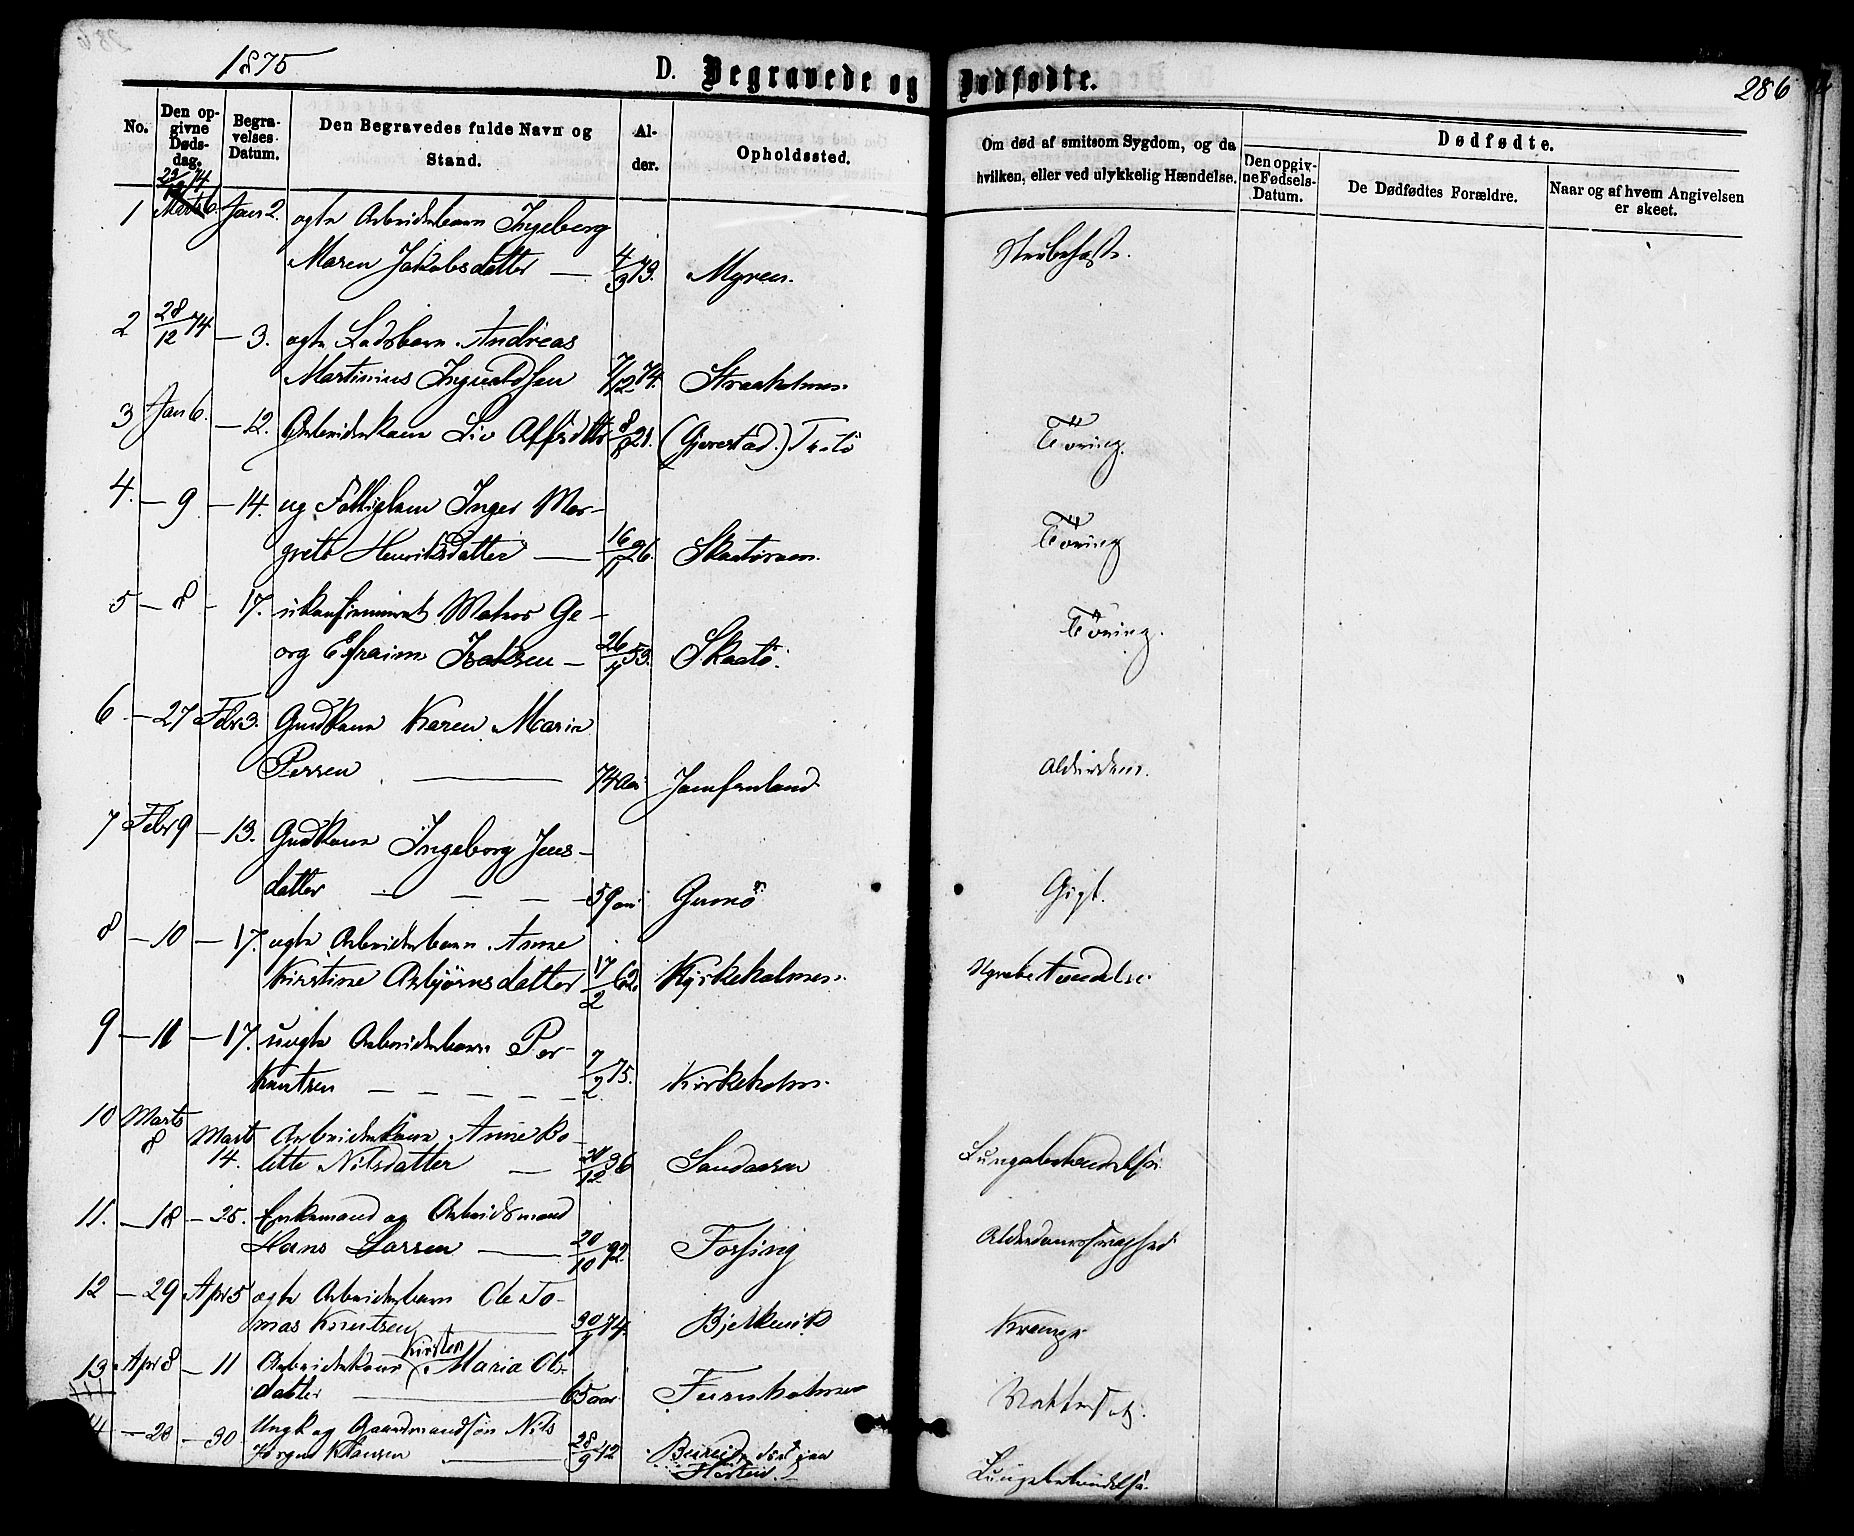 1875 D. Begravede og Dødfødte. 286
No. Den opgivne Dødsdag. Begravelses Datum. Den Begravedes fulde Navn og Stand. Alder. Opholdssted. Om død af smitsom Sygdom, og da hvilken, eller ved ulykkelig Hændelse. Dødfødte. Den opgivne Fødsels-Datum. De Dødfødtes Forældre. Naar og af hvem Angivelsen er skeet.
1 74 Jan 2. ægte Arbeiderbarn Ingeborg
Maren Jakobsdatter — 4/3 73. Myren. Strubehoste.
2 28/12 74 — 3. ægte Andreas
Martinius Ingvaldsen 7/12 74. Straaholmen
3 Jan 6. — 12. Arbeiderkone Liv 21. (Gjerestad.) Tæring.
4. — 9 — 14. ug Inger Mar-
grete Henriksdatter — 16/1 26. Tæring
5 — 8 — 17. ukonfirmeret Ge-
org Efraim — 26/1 53. Skaatö. Tæring.
6 — 27 Febr 3. Gmdkone Karen Maria
— 74 Aar Jomfruland. Alderdom.
7 Febr 9 — 13. Gmdkone Ingeborg Jens-
datter — — — 59 aar Gumö Gigt.
8 — 10 — 17. ægte Arbeiderbarn Anne
Kirstine Asbjørnsdatter 17/2 62. Kirkeholmen.
9 — 11 — 17. uægte Arbeiderbarn Per
Knutsen — — — — — 7/2 75. Kirkeholm.
10 Marts 8 Marts 14. Arbeiderkone Anne Bo-
lette Nilsdatter — /12 36 Sandaasen Lungebetændelse.
11. — 18 — 25. Enkemand og Arbeidsmand
Hans Larsen — 20/10 92. Fossing Alderdomssvaghed
12 — 29 Apr 5 ægte Arbeiderbarn Ole To-
mas Knutsen 74. Bjelkevik Krampe
13 Apr 8 — 11 Arbeiderkone Kirsten Maria Ols-
datter — 65 aar. Furuholmen Vattersot.
— 23 — 30 Ungk og Gaardmandssøn Nils
Jørgen Klausen — 28/9 42 død paa
Lungebetændelse.